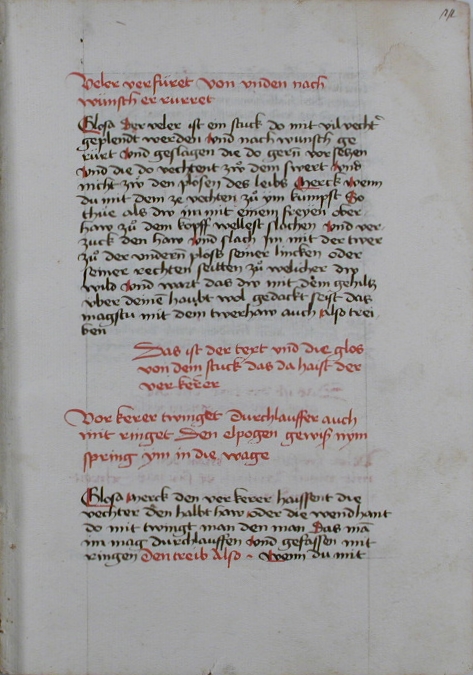 Veler verfüret von vnden nach
wünsch er rurret
Glosa Der veler ist ein stuck do mit vil vechtr̄
geplendt werden vnd nach wunsch ge
rürt vnd geslagen die do gern̄ vor sehen
vnd die do vechtent zw̄ dem swert vnd
nicht zw̄ den plosen des leibs Merck wenn
du mit dem ze vechten zů ym kumpst So
thue als dw im mit einem freyen ober
haw zů dem kopff wellest slachen vnd ver
zuck den haw vnd slach Im mit der twer
zů der vndern̄ plosß seiner lincken oder
seiner rechten seitten zů welicher dw
wild vnd wart das dw mit dem gehiltz
vber deinē haubt wol gedackt seist das
magstu mit dem twerhaw auch Also trei
ben
Das ist der text vnd die glos
von dem stuck das da haist der
verkerer
Vorkerer twinget Durchlauffer auch
mit ringet Den elpogen gewiß nym
spring ym in die wage
Glosa Merck den verkerer haissent die
vechter den halbt haw oder die wendhant
do mit twingt man den man Das mā
im mag durchlauffen vnd gefassen mit
ringen Den treib Also ~ Wenn du mit